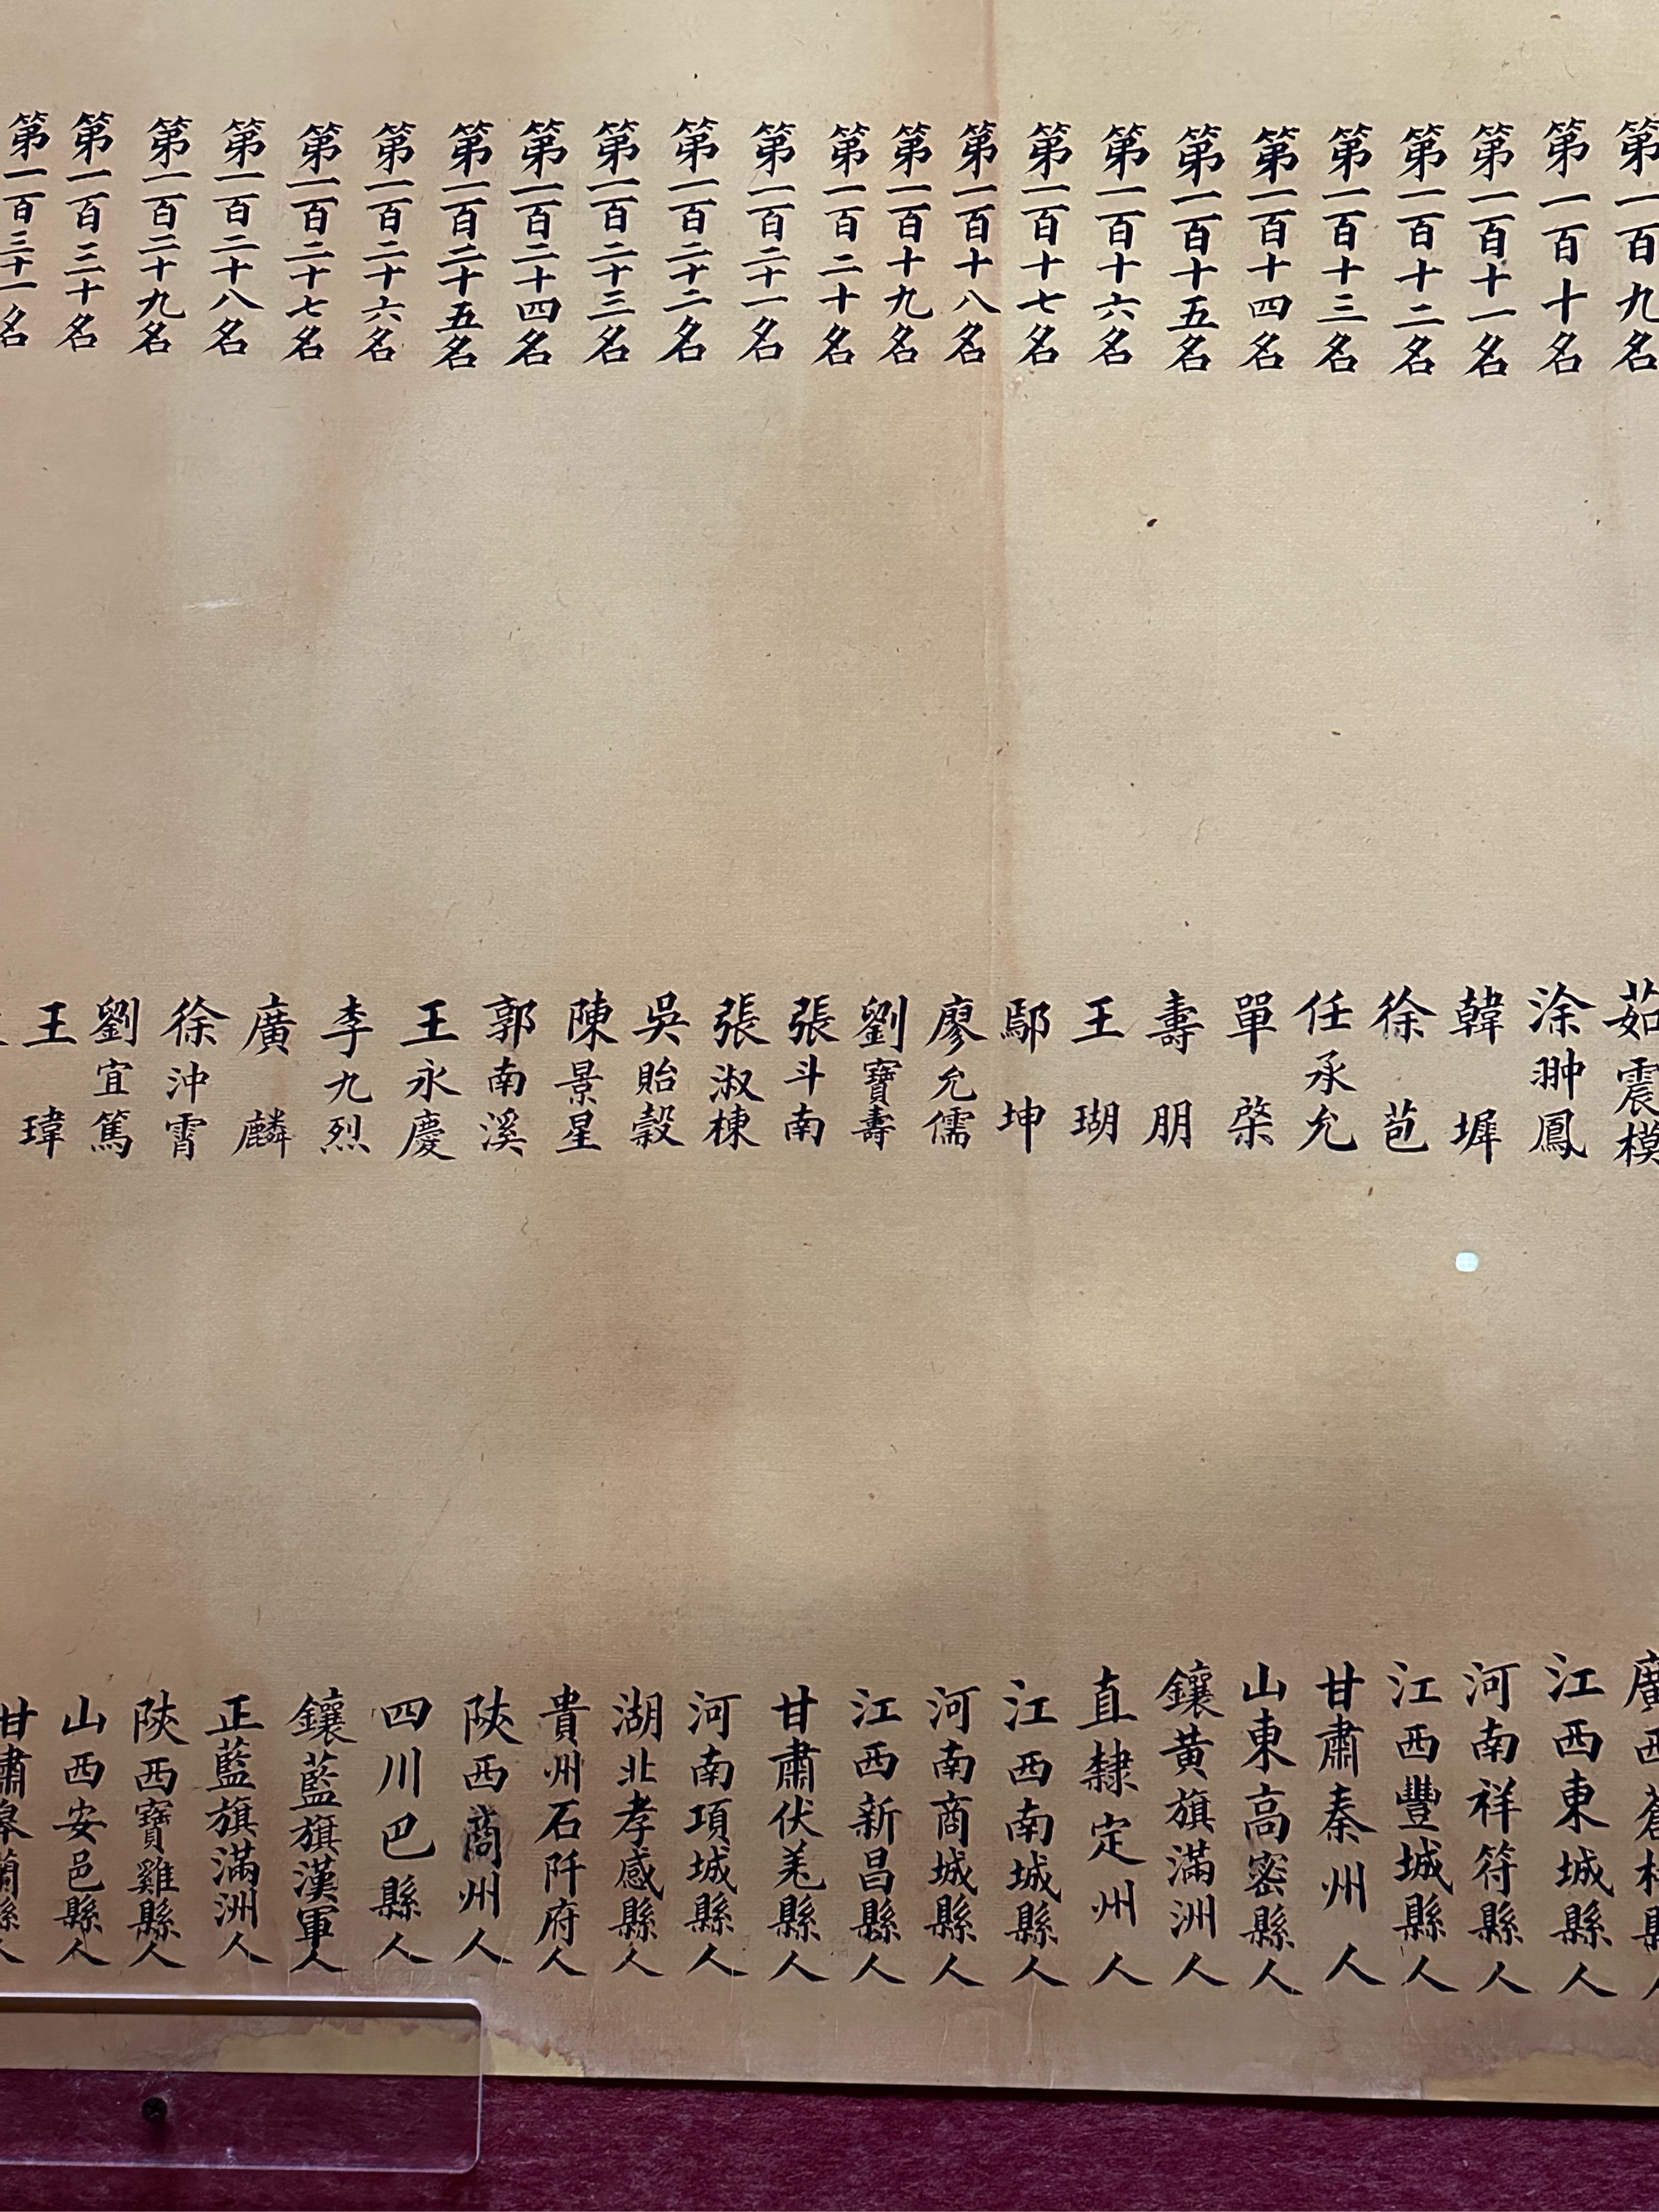 第一百九名 茹震模 廣西蒼梧縣人
第一百十名 涂翀鳳 江西東城縣人
第一百十一名 韓墀 河南祥符縣人
第一百十二名 徐苞 江西豐城縣人
第一百十三名 任承允 甘肅秦州人
第一百十四名 單棨 山東高密縣人
第一百十五名 壽朋 鑲黃旗滿洲人
第一百十六名 王瑚 直隸定州人
第一百十七名 鄢坤 江西南城縣人
第一百十八名 廖允儒 河南商城縣人
第一百十九名 劉寶壽 江西新昌縣人
第一百二十名 張斗南 甘肅伏羌縣人
第一百二十一名 張淑棟 河南項城縣人
第一百二十二名 吳貽穀 湖北孝感縣人
第一百二十三名 陳景星 貴州石阡府人
第一百二十四名 郭南溪 陝西商州人
第一百二十五名 王永慶 四川巴縣人
第一百二十六名 李九烈 鑲藍旗漢軍人
第一百二十七名 廣麟 正藍旗滿洲人
第一百二十八名 徐沖霄 陝西寶雞縣人
第一百二十九名 劉宜篤 山西安邑縣人
第一百三十名 王瑋 甘肅皋蘭縣人
第一百三十一名